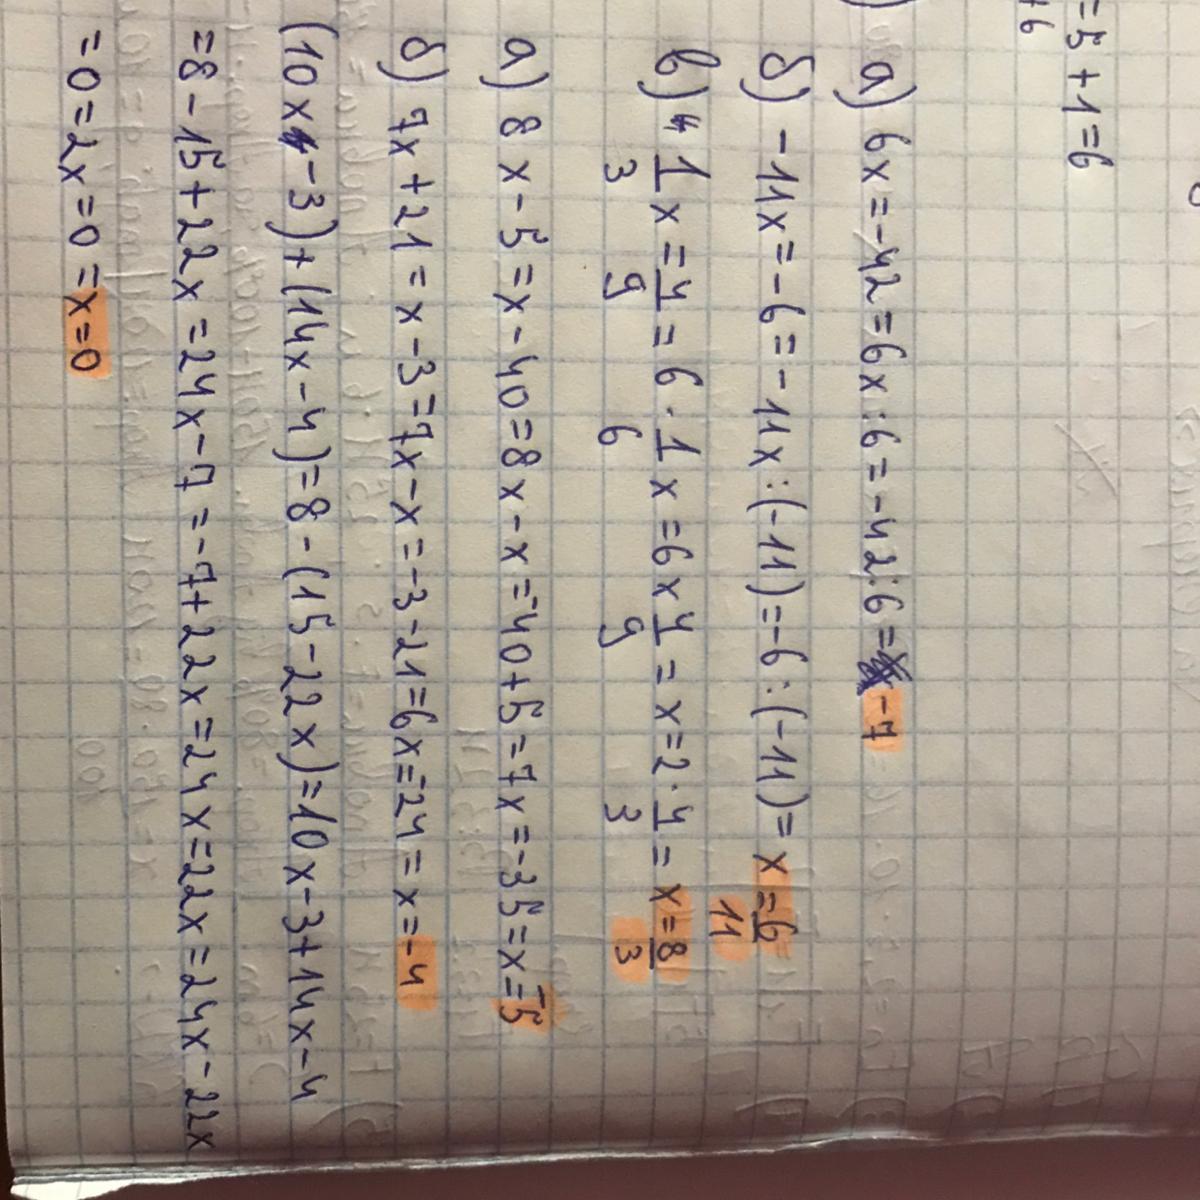 = 5 + 1 = 6
+6
а) 6x = -42 = 6x : 6 = -42 : 6 = -7
б) -11x = -6 = -11x : (-11) = -6 : (-11) = x = 6/11
в) 1/3 x = 4/9 = 6 · 1/6 x = 6 x 4/9 = x = 2 · 4/3 = x = 8/3
а) 8x - 5 = x - 40 = 8x - x = -40 + 5 = 7x = -35 = x = -5
б) 7x + 21 = x - 3 = 7x - x = -3 - 21 = 6x = -24 = x = -4
(10x - 3) + (14x - 4) = 8 - (15 - 22x) = 10x - 3 + 14x - 4
= 8 - 15 + 22x = 24x - 7 = -7 + 22x = 24x = 22x = 24x - 22x
= 0 = 2x = 0 = x = 0